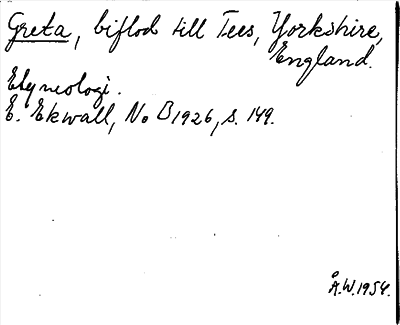 Greta, biflod till Tees, Yorkshire,
England.
Etymologi.
E. Ekwall, No B 1926, s. 149.
Å.W. 1954.